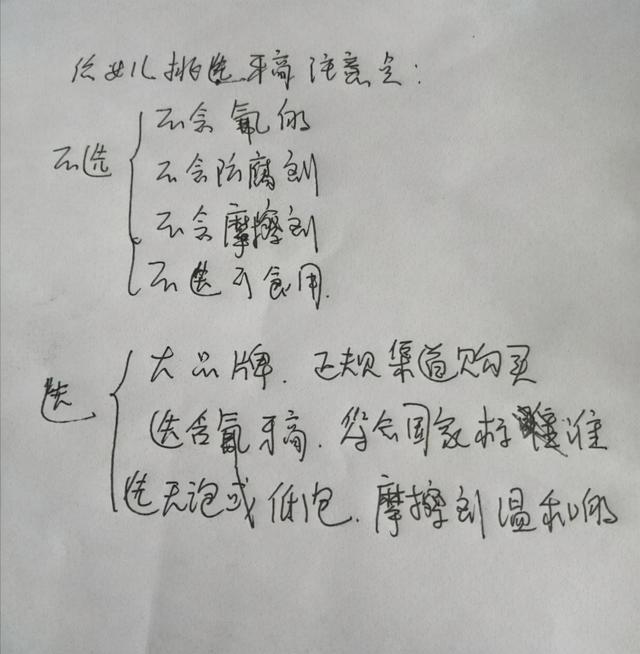 给女儿挑选牙膏注意点:
不选
不含氟的
不含防腐剂
不含摩擦剂
不选可食用.
选
大品牌.正规渠道购买
选含氟牙膏.符合国家标准
选无泡或低泡.摩擦剂温和的